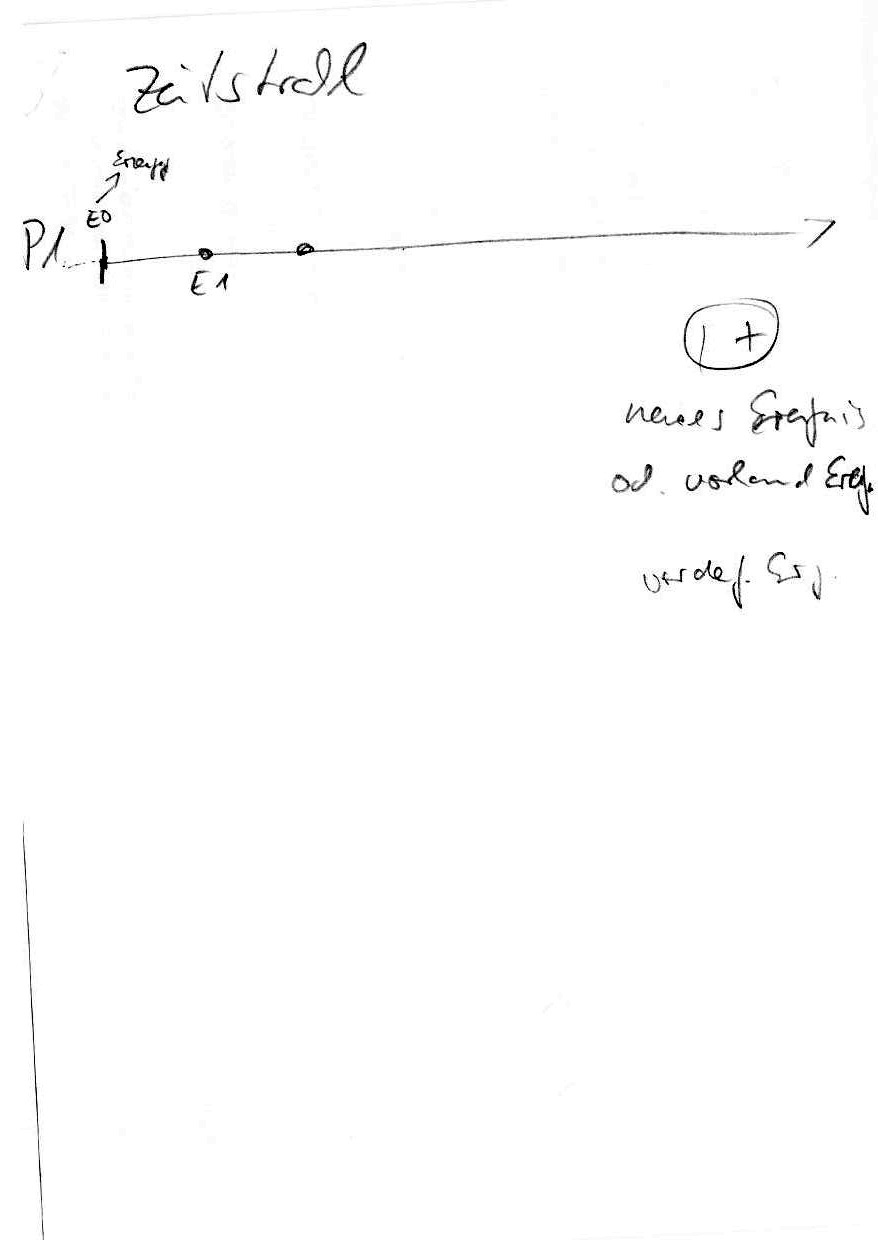 Zeitstrahl
E0
P1
E1
+
neues Ereignis
od. vorhand Ereig.
vordef. Erg.